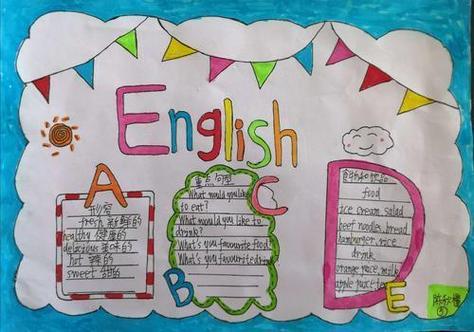 English
A
形容
fresh 新鲜的
healthy 健康的
delacious 美味的
hot 辣的
sweet 甜的
B
C
重点句型
What would you like
to eat?
What would you like to
drink?
What's you favourite food?
What's you favourite drink
D
食物和饮品
food
ice cream salad
beef noodles, bread
hamburger rice
drink
orange juice, milk
apple juice tea
E